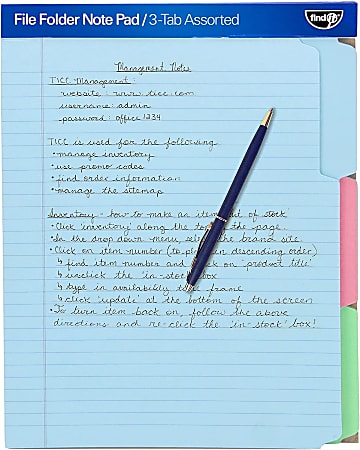 File Folder Note Pad / 3-Tab Assorted
find It
Management Notes
TICC Management:
website: www.ticc.com
username: admin
password: office1234
TICC is used for the following
• manage inventory
• use promo codes
• find order information
• manage the sitemap
Inventory - how to make an item out of stock
• Click 'inventory' along the top of the page
• In the drop down menu, select the brand site
• Click on item number (to place in descending order)
↳ find item number and click on 'product title'
↳ unclick the 'in-stock' box
↳ type in availability time frame
↳ click 'update' at the bottom of the screen
• To turn item back on, follow the above
directions and re-click the 'in-stock' box!